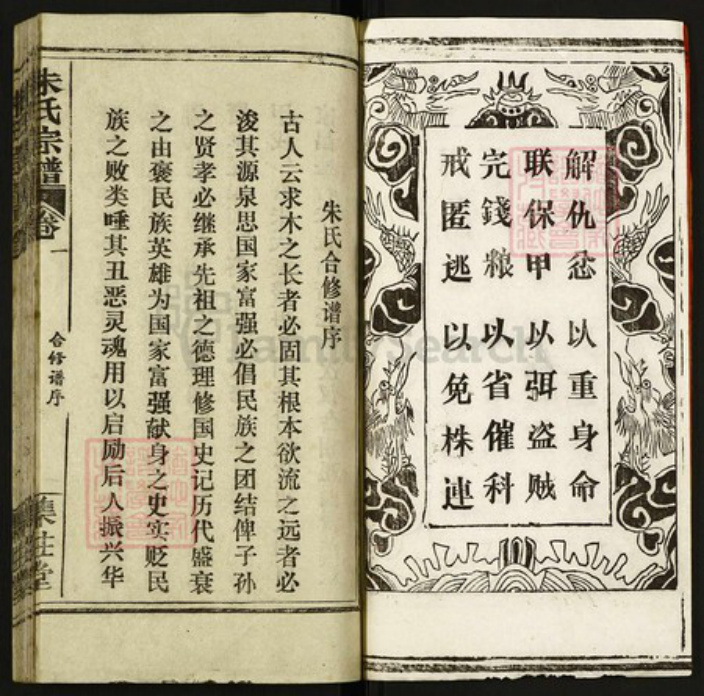 解仇忿以重身命
联保甲以弭盗贼
完錢粮以省催科
戒匿逃以免株連
朱氏合修谱序
古人云求木之长者必固其根本欲流之远者必
浚其源泉思国家富强必倡民族之团结俾子孙
之贤孝必继承先祖之德理修国史记历代盛衰
之由褒民族英雄为国家富强献身之史实贬民
族之败类唾其丑恶灵魂用以启励后人振兴华
朱氏宗谱
卷
合修谱序
集庄堂
FamilySearch